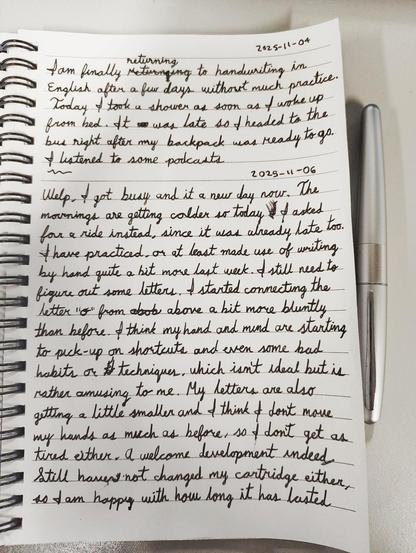 2025-11-04
returning
I am finally to handwriting in
English after a few days without much practice.
Today I took a shower as soon as I woke up
from bed. It was late so I headed to the
bus right after my backpack was ready to go.
I listened to some podcasts
2025-11-06
Welp, I got busy and it a new day now. The
mornings are getting colder so today I asked
for a ride instead, since it was already late too.
I have practiced, or at least made use of writing
by hand quite a bit more last week. I still need to
figure out some letters. I started connecting the
letter "o" from above a bit more bluntly
than before. I think my hand and mind are starting
to pick-up on shortcuts and even some bad
habits or techniques, which isn't ideal but is
rather amusing to me. My letters are also
getting a little smaller and I think I don't move
my hands as much as before, so I don't get as
tired either. A welcome development indeed.
Still haven't not changed my cartridge either,
so I am happy with how long it has lasted